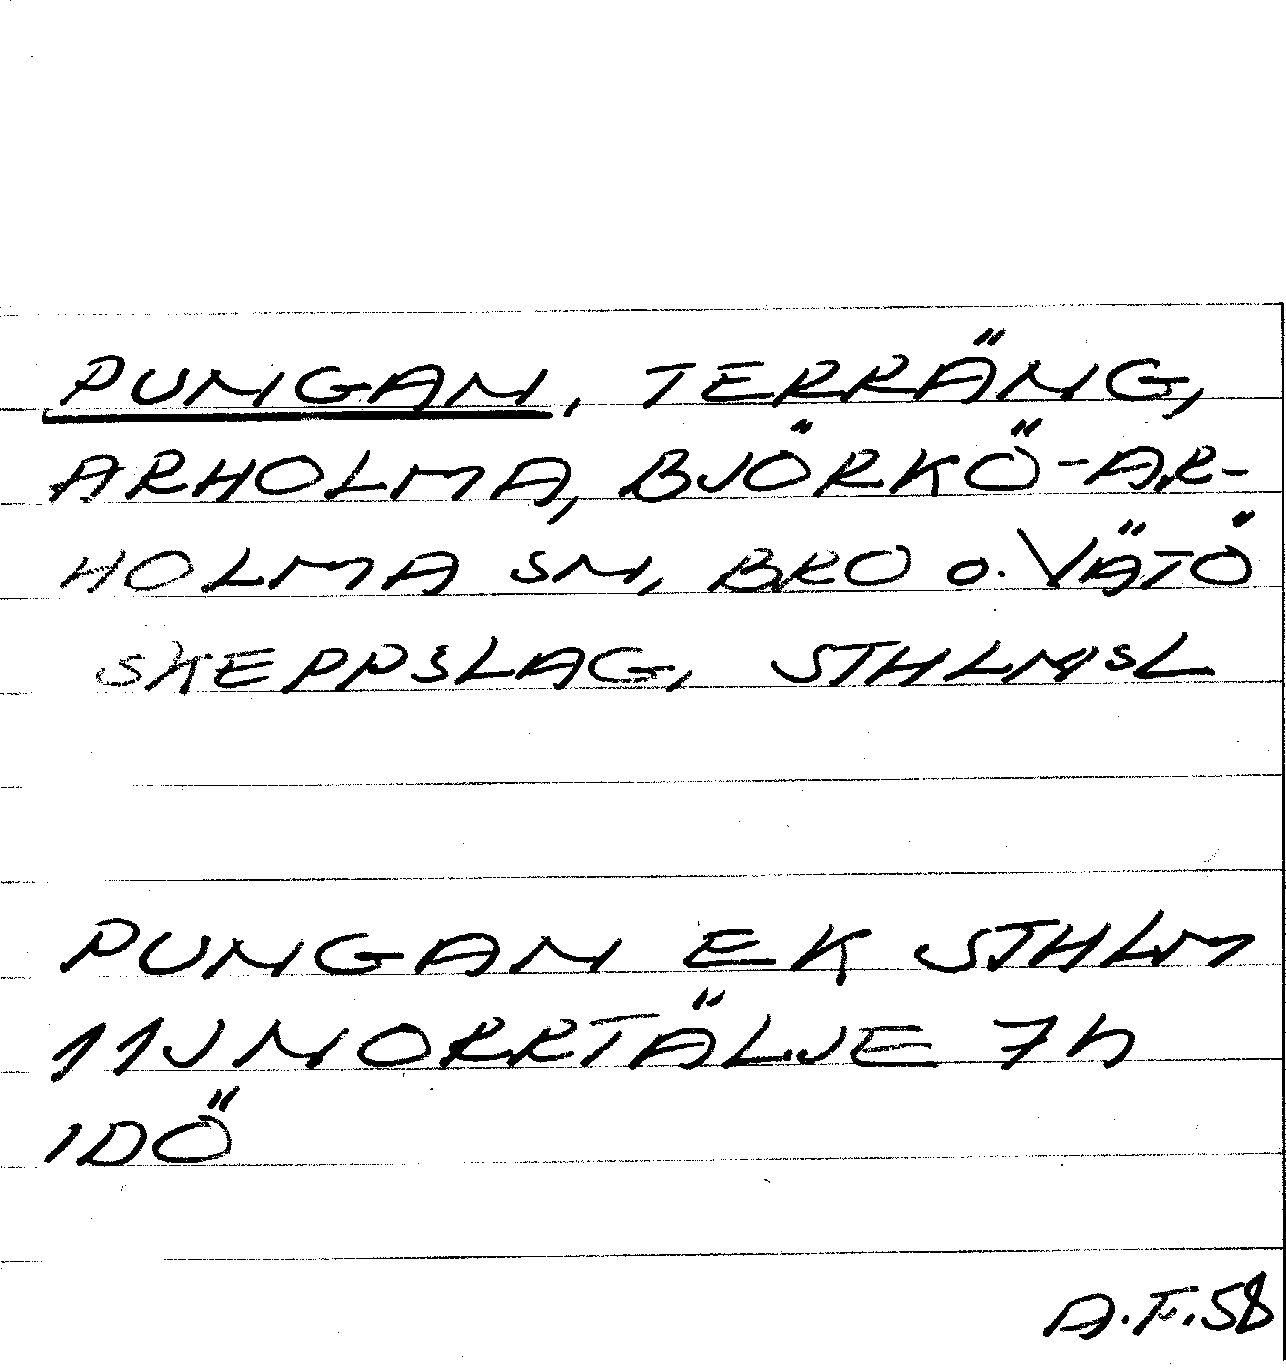 PUNGAN, TERRÄNG,
ARHOLMA, BJÖRKÖ-AR-
HOLMA SN, BRO o. VÄTÖ
SKEPPSLAG, STHLMSL
PUNGAN EK STHLM
11J NORRTÄLJE 7h
IDÖ
A.F. 58